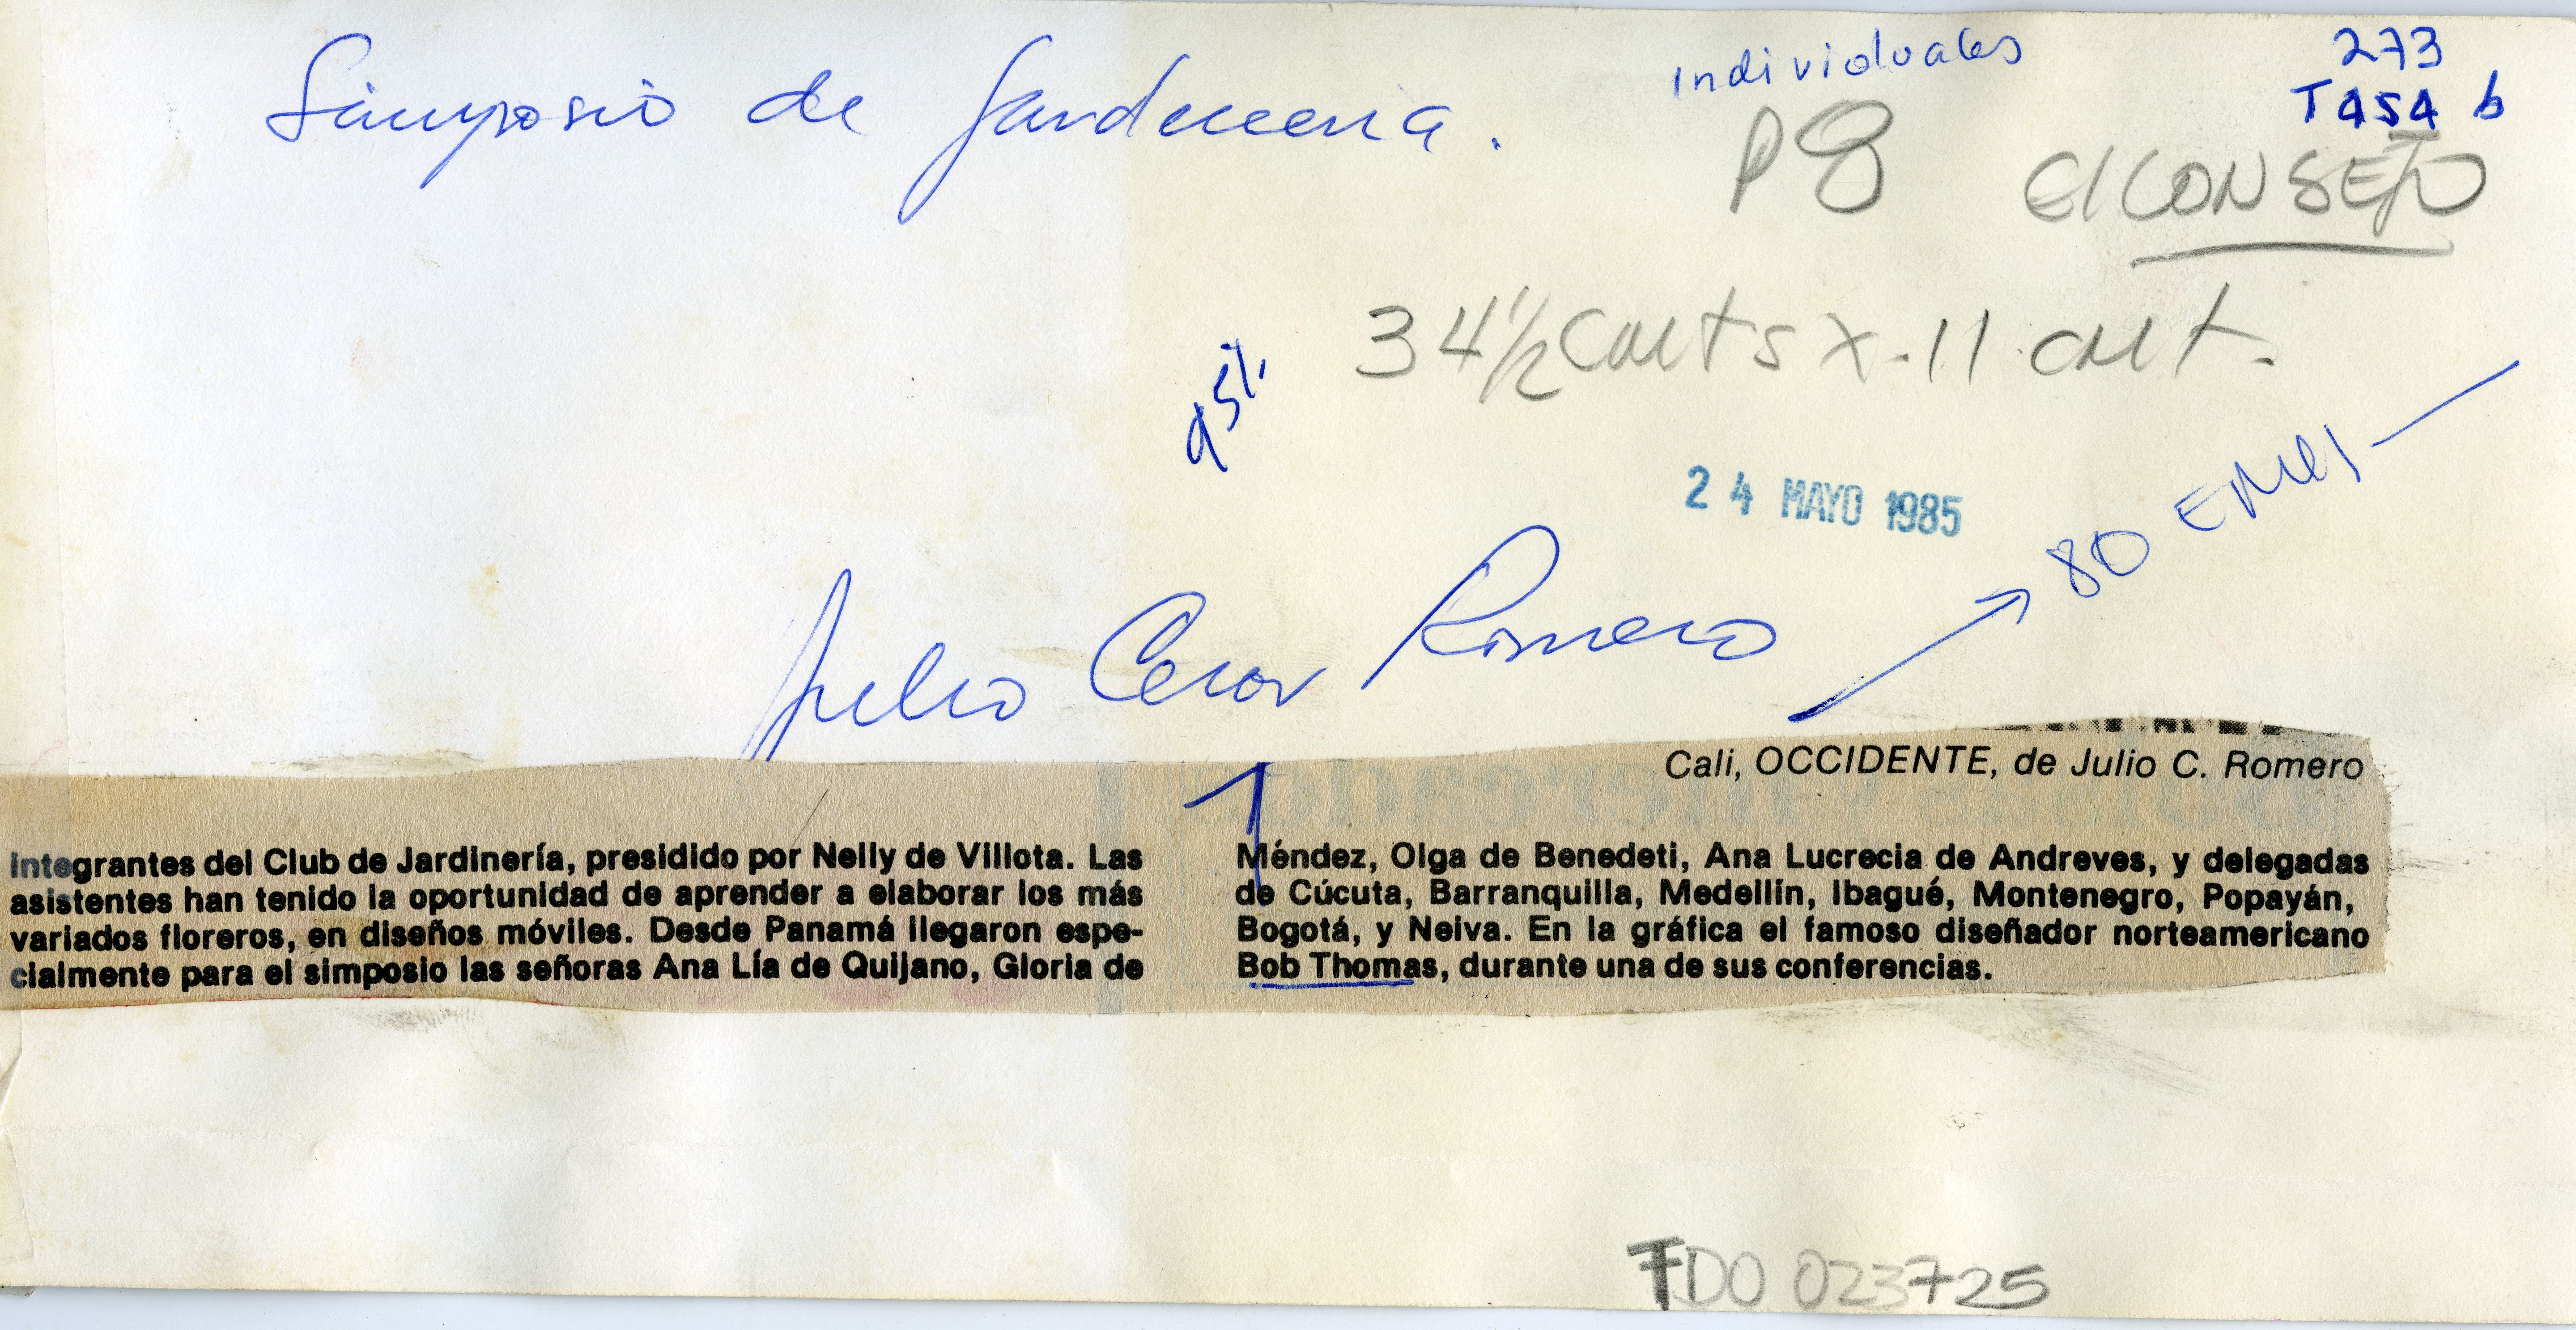 Simposio de Jardineria.
Individuales
273
T454 b
P8
El CONSEJO
34 1/2 cmts x 11 cmt.
95%
24 MAYO 1985
80 EMES
Julio Cesar Romero
Cali, OCCIDENTE, de Julio C. Romero
Integrantes del Club de Jardinería, presidido por Nelly de Villota. Las
asistentes han tenido la oportunidad de aprender a elaborar los más
variados floreros, en diseños móviles. Desde Panamá llegaron espe-
cialmente para el simposio las señoras Ana Lía de Quijano, Gloria de
Méndez, Olga de Benedeti, Ana Lucrecia de Andreves, y delegadas
de Cúcuta, Barranquilla, Medellín, Ibagué, Montenegro, Popayán,
Bogotá, y Neiva. En la gráfica el famoso diseñador norteamericano
Bob Thomas, durante una de sus conferencias.
FDO 023725